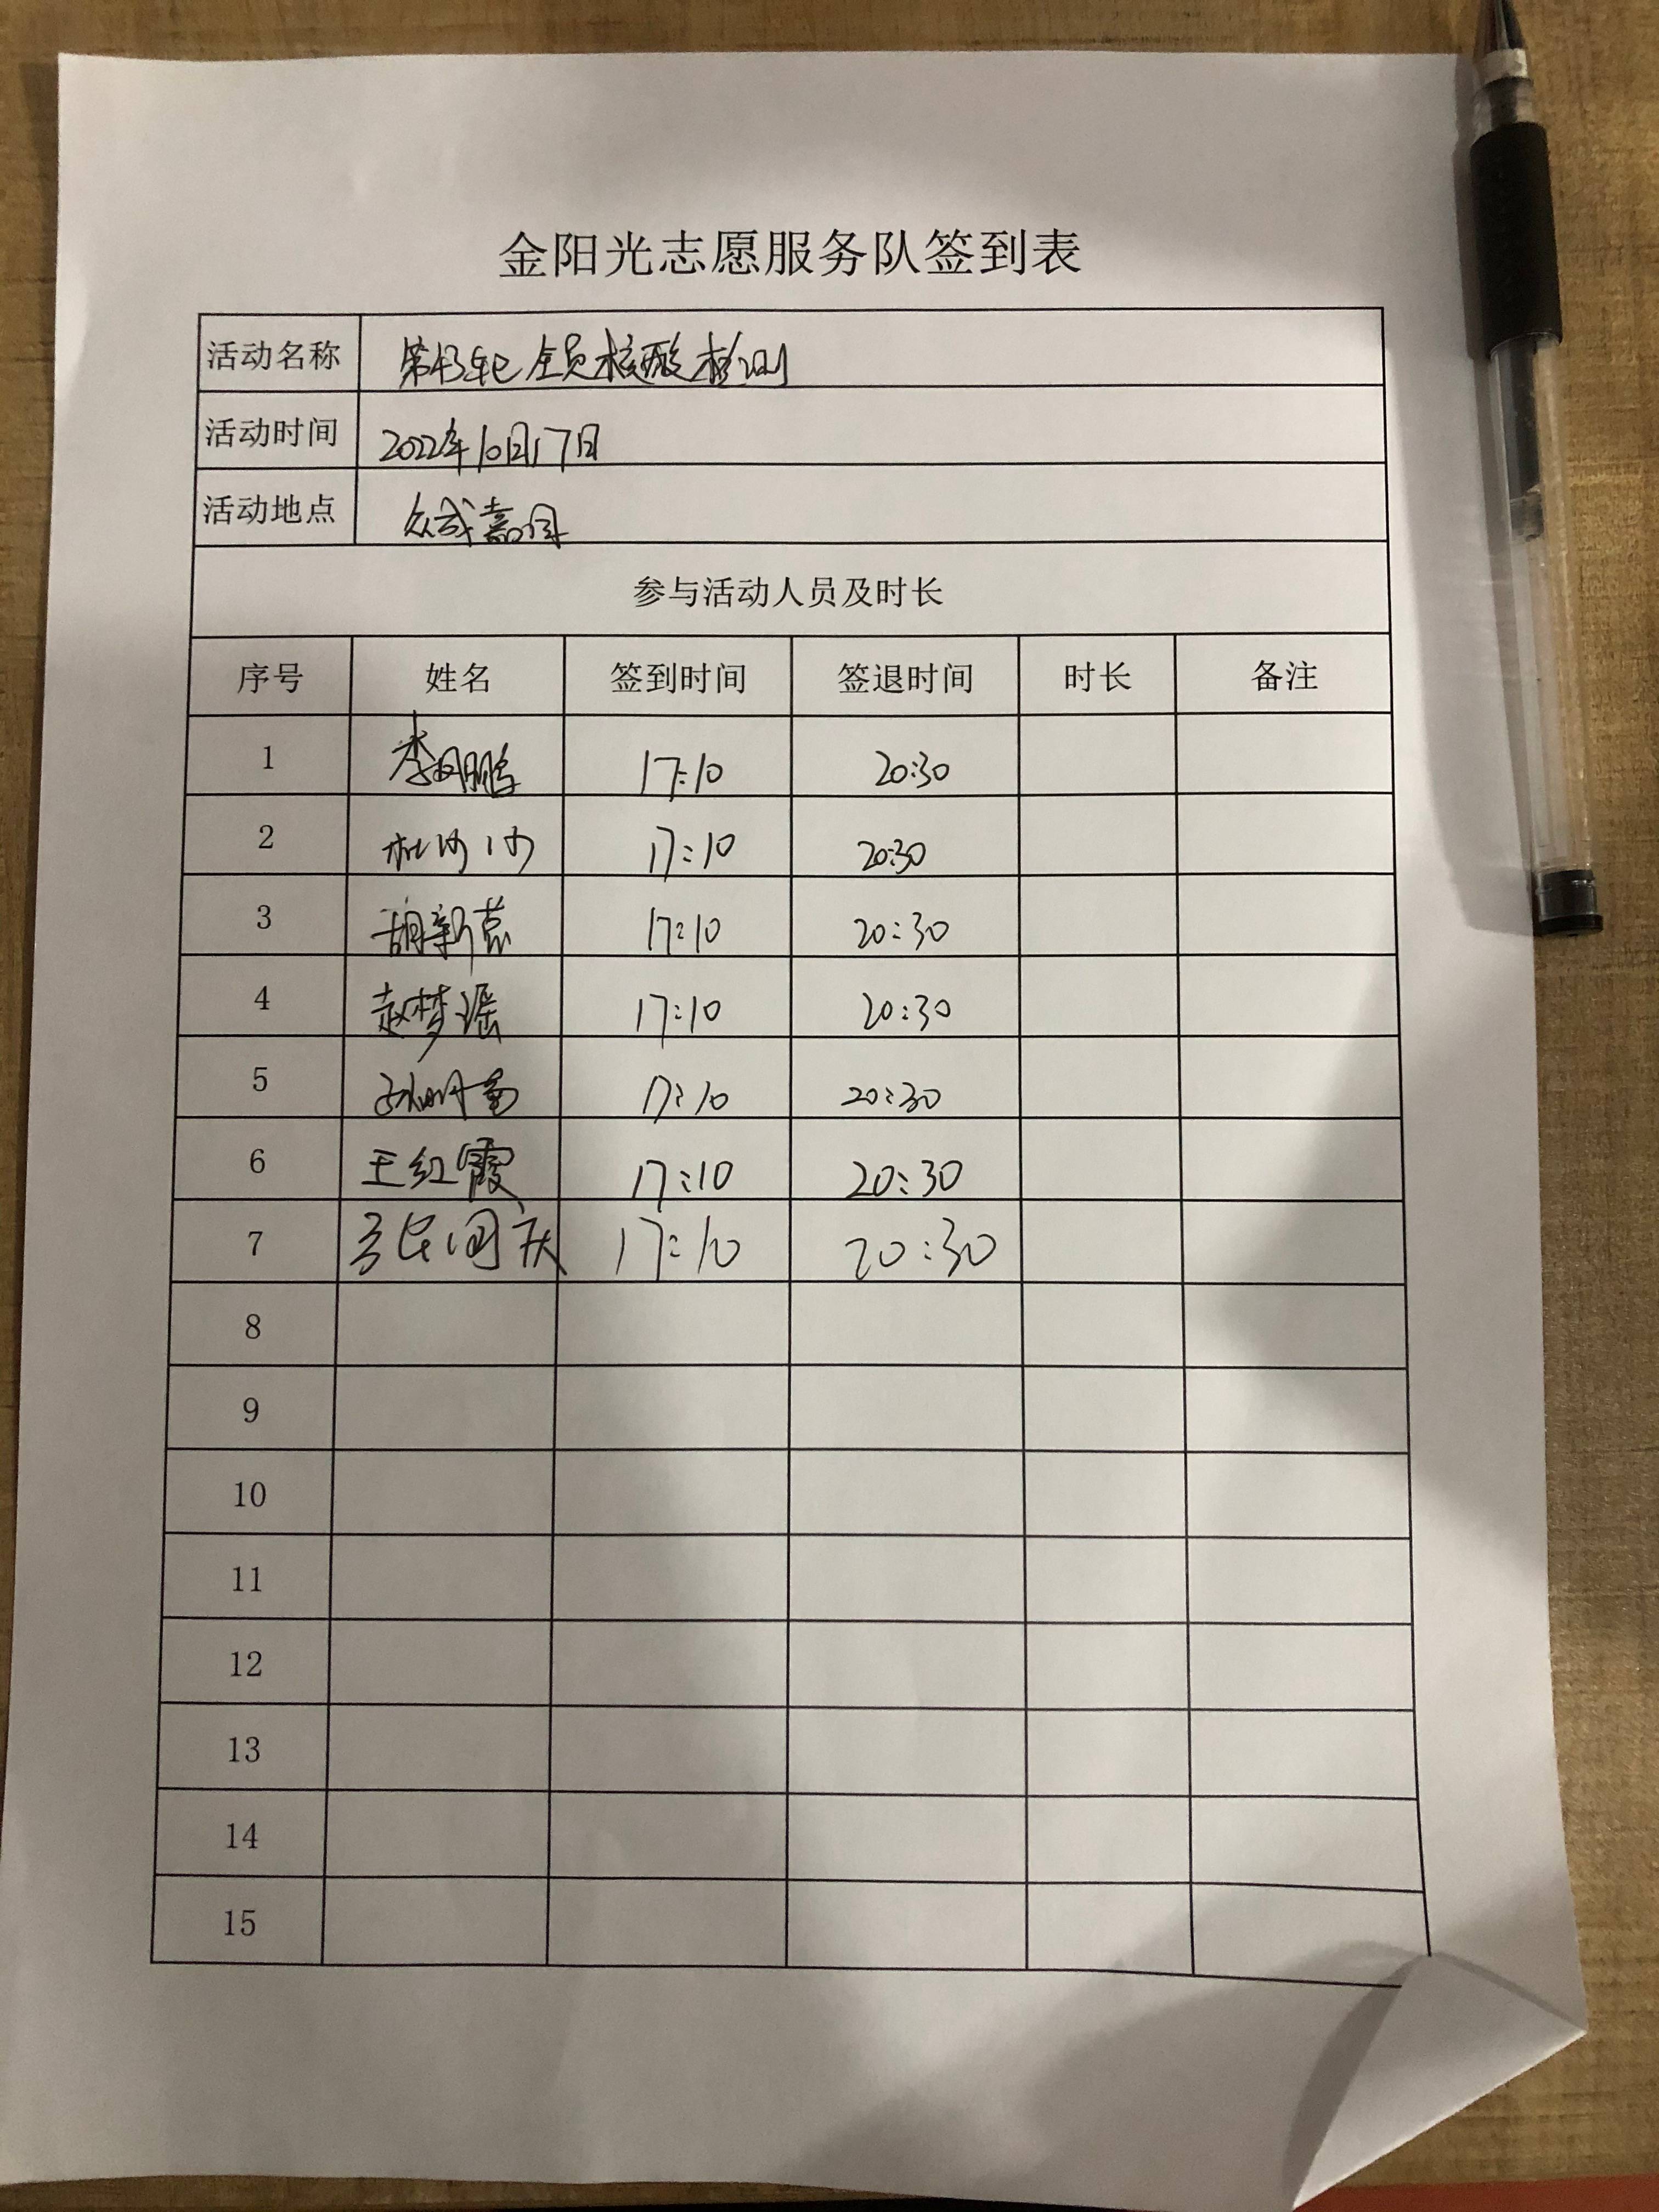 金阳光志愿服务队签到表
活动名称 第43轮全员核酸检测
活动时间 2022年10月17日
活动地点 众成嘉园
参与活动人员及时长
序号 姓名 签到时间 签退时间 时长 备注
1 17:10 20:30
2 杜沙沙 17:10 20:30
3 17:10 20:30
4 赵梦瑶 17:10 20:30
5 17:10 20:30
6 王红霞 17:10 20:30
7 17:10 20:30
8
9
10
11
12
13
14
15